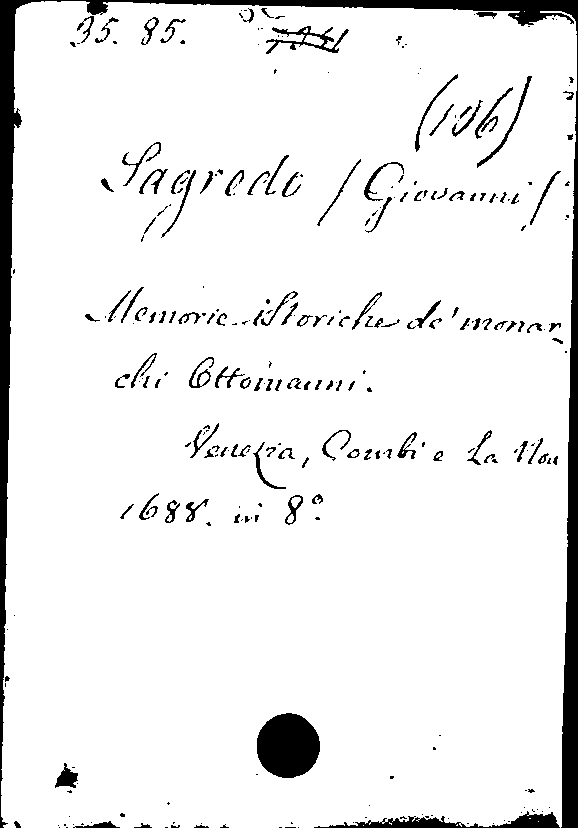 35. 85.
(106)
Sagredo (Giovanni)
Memorie istoriche de' monar-
chi Ottomanni.
Venezia, Combi e La Nou
1688. in 8º.